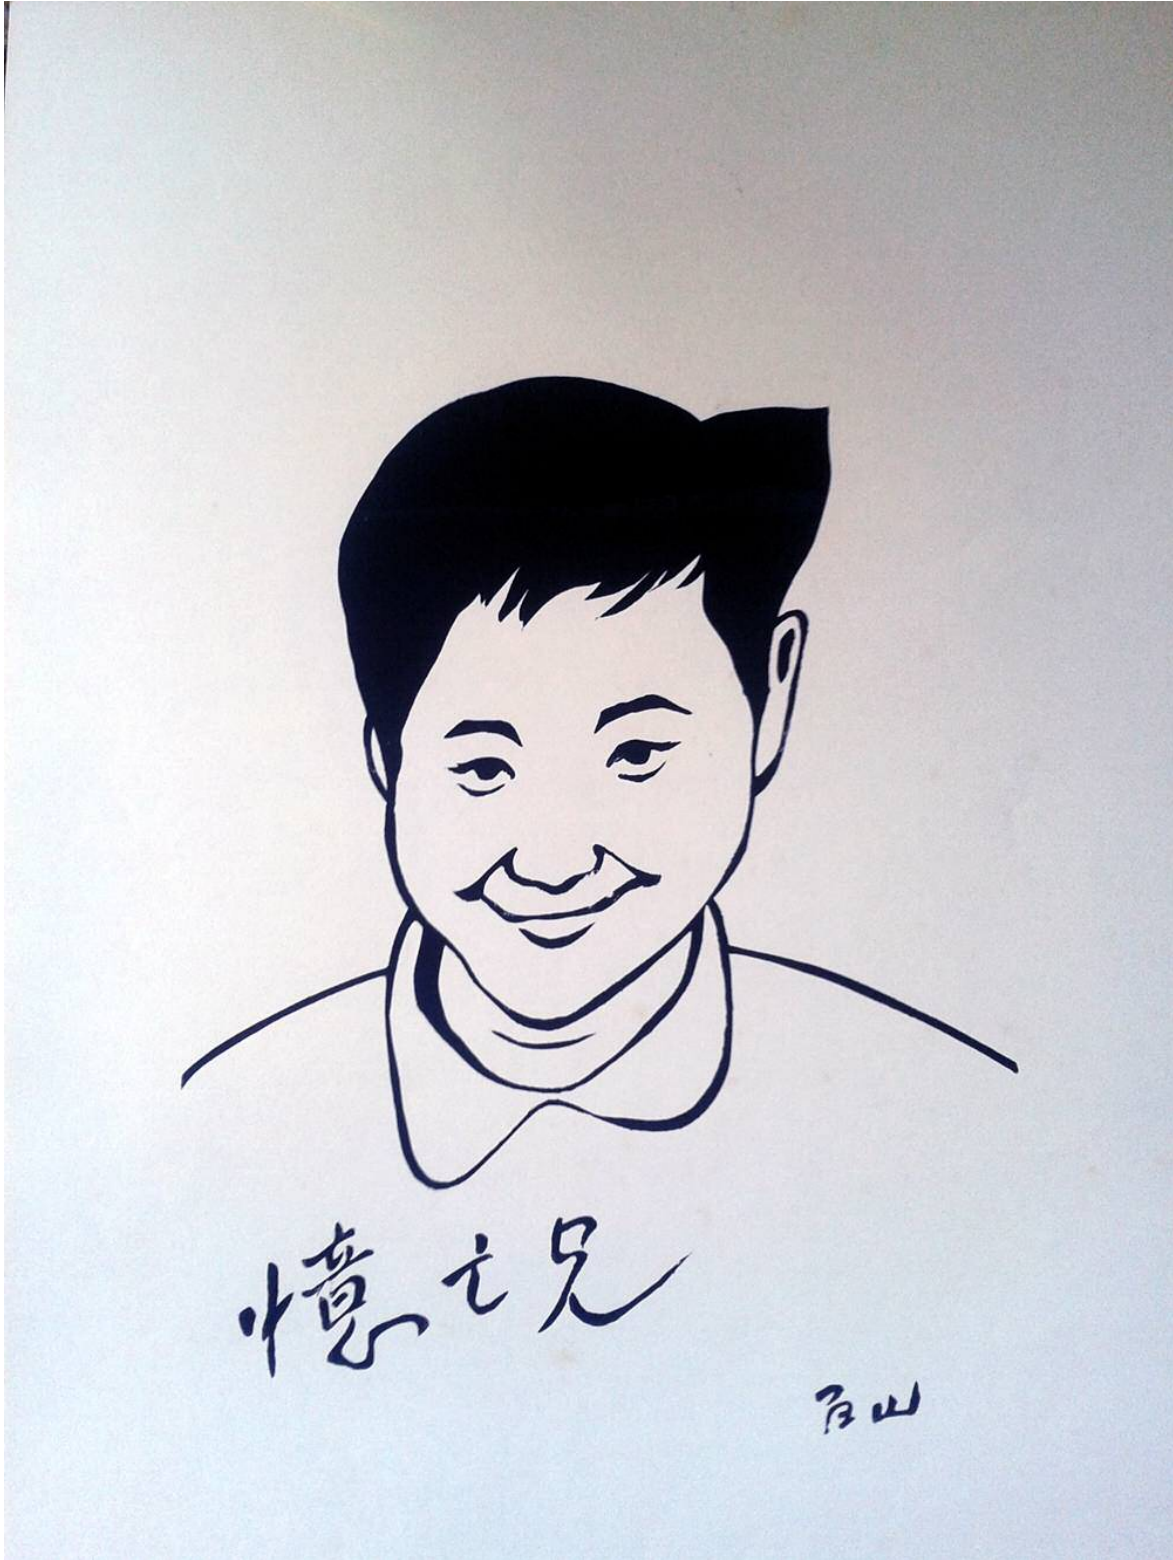 憶亡兄
百山